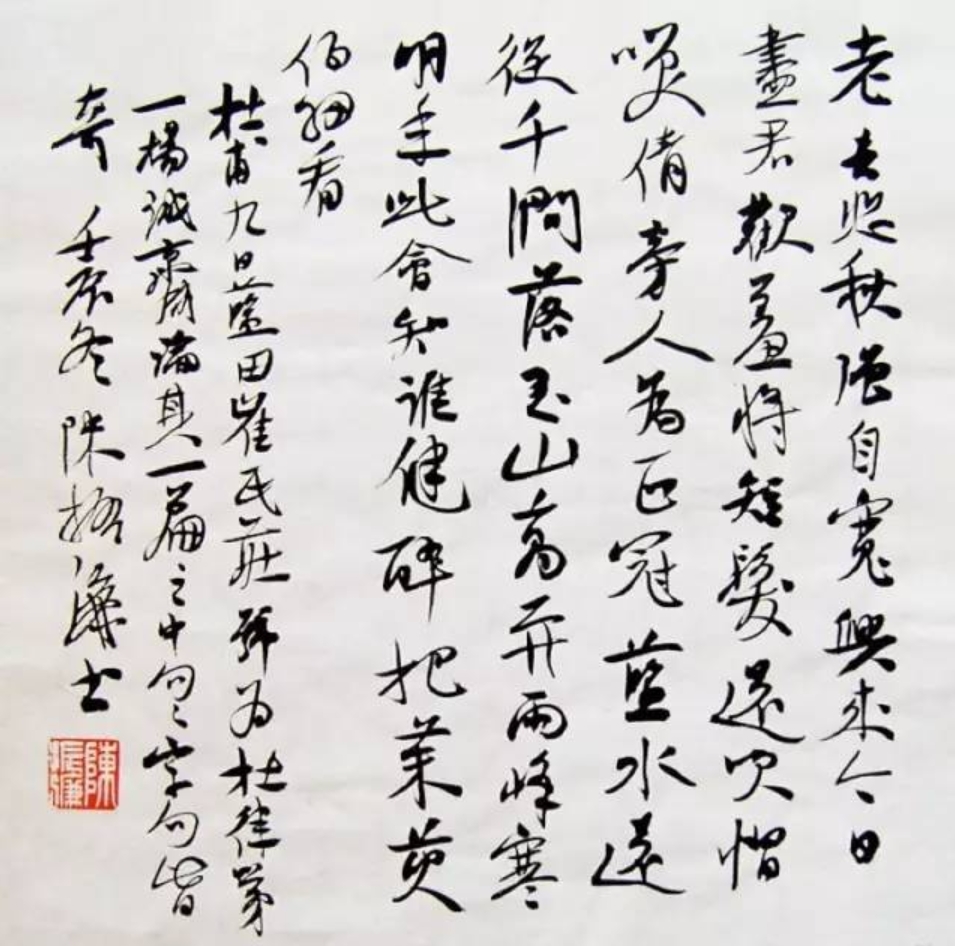 老去悲秋強自寬興來今日
盡君歡羞將短髮還吹帽
咲倩旁人為正冠藍水遠
從千澗落玉山高并兩峰寒
明年此會知誰健醉把茱萸
仔細看
杜甫九日藍田崔氏莊號為杜律第
一楊誠齋謂其一篇之中句々字句皆
奇 壬辰冬 陳振濂書
陳振濂